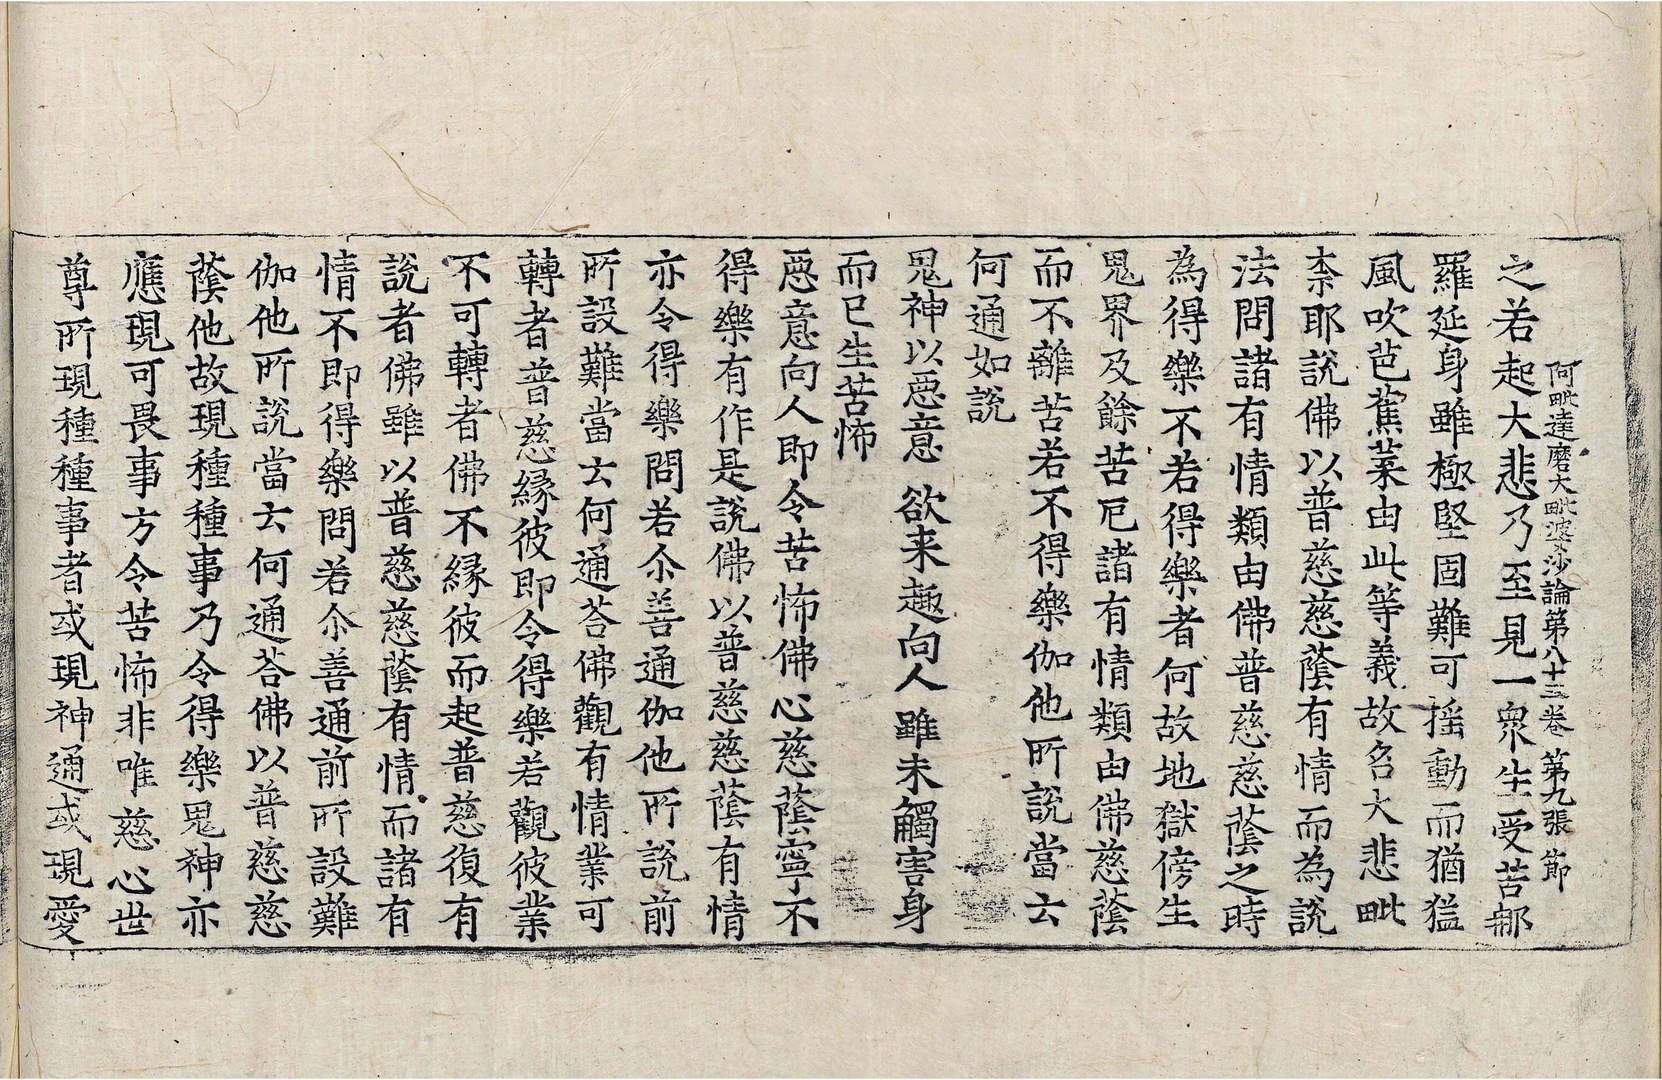 阿毗達磨大毗婆沙論第八十三卷 第九張 節
之若起大悲乃至見一衆生受苦郍
羅延身雖極堅固難可揺動而猶猛
風吹芭蕉葉由此等義故名大悲毗
柰耶說佛以普慈慈蔭有情而為說
法問諸有情類由佛普慈慈蔭之時
為得樂不若得樂者何故地獄傍生
鬼界及餘苦厄諸有情類由佛慈蔭
而不離苦若不得樂伽他所說當云
何通如說
鬼神以惡意 欲来趣向人 雖未觸害身
而已生苦怖
惡意向人即令苦怖佛心慈蔭寧不
得樂有作是說佛以普慈慈蔭有情
亦令得樂問若尒善通伽他所說前
所設難當云何通荅佛觀有情業可
轉者普慈緣彼即令得樂若觀彼業
不可轉者佛不緣彼而起普慈復有
說者佛雖以普慈慈蔭有情而諸有
情不即得樂問若尒善通前所設難
伽他所說當云何通荅佛以普慈慈
蔭他故現種種事乃令得樂鬼神亦
應現可畏事方令苦怖非唯慈心世
尊所現種種事者或現神通或現愛